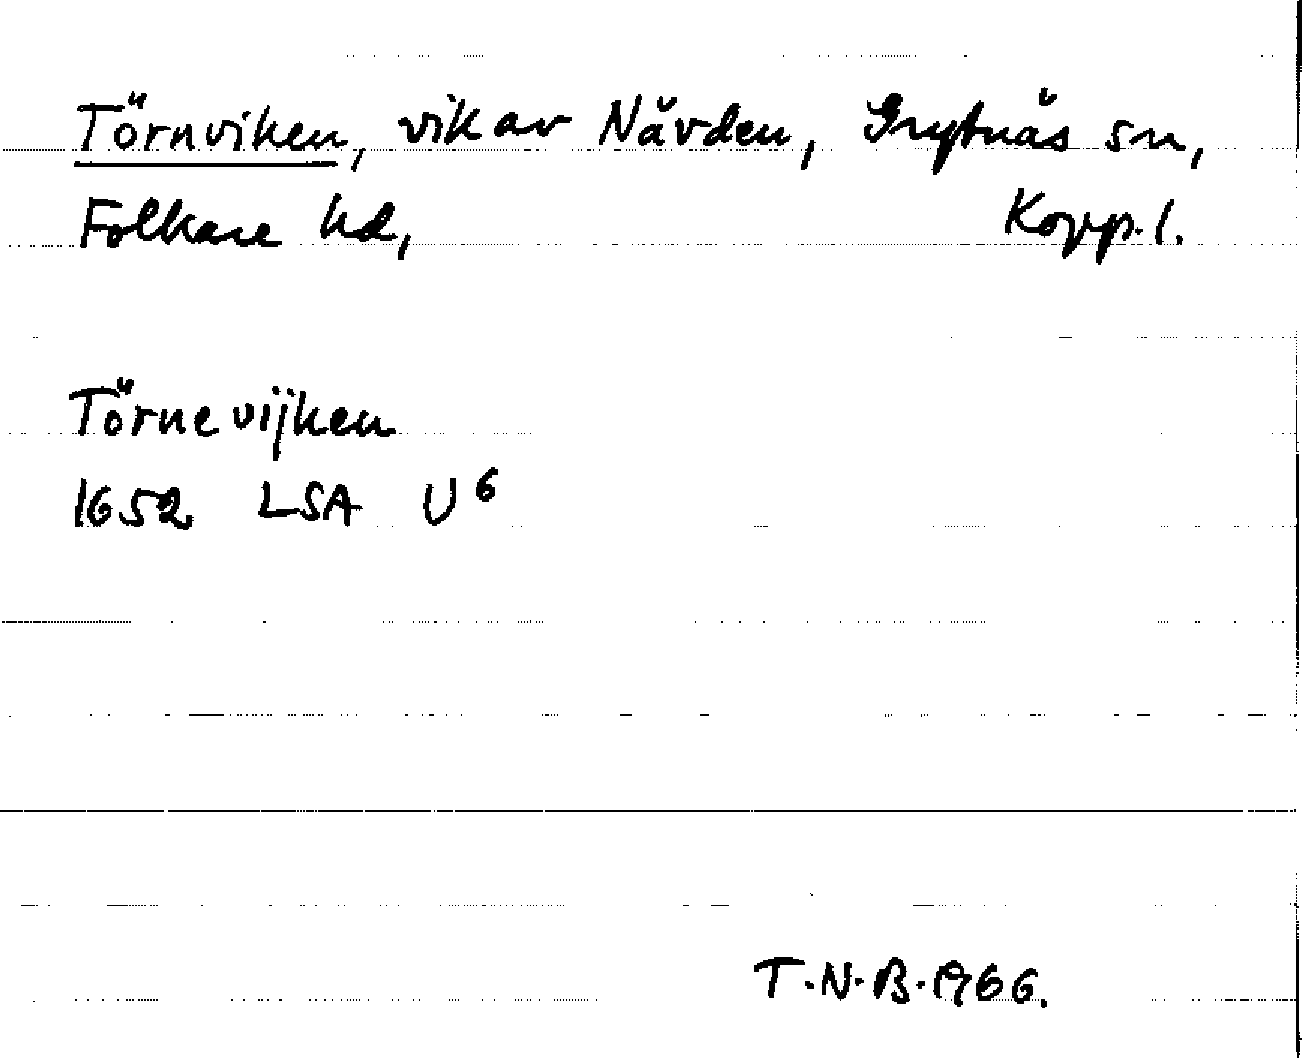 Törnviken, vik av Nävden, Grytnäs sn,
Folkare hd, Kopp. l.
Törnevijken
1652 LSA U⁶
T.N.B. 1966.